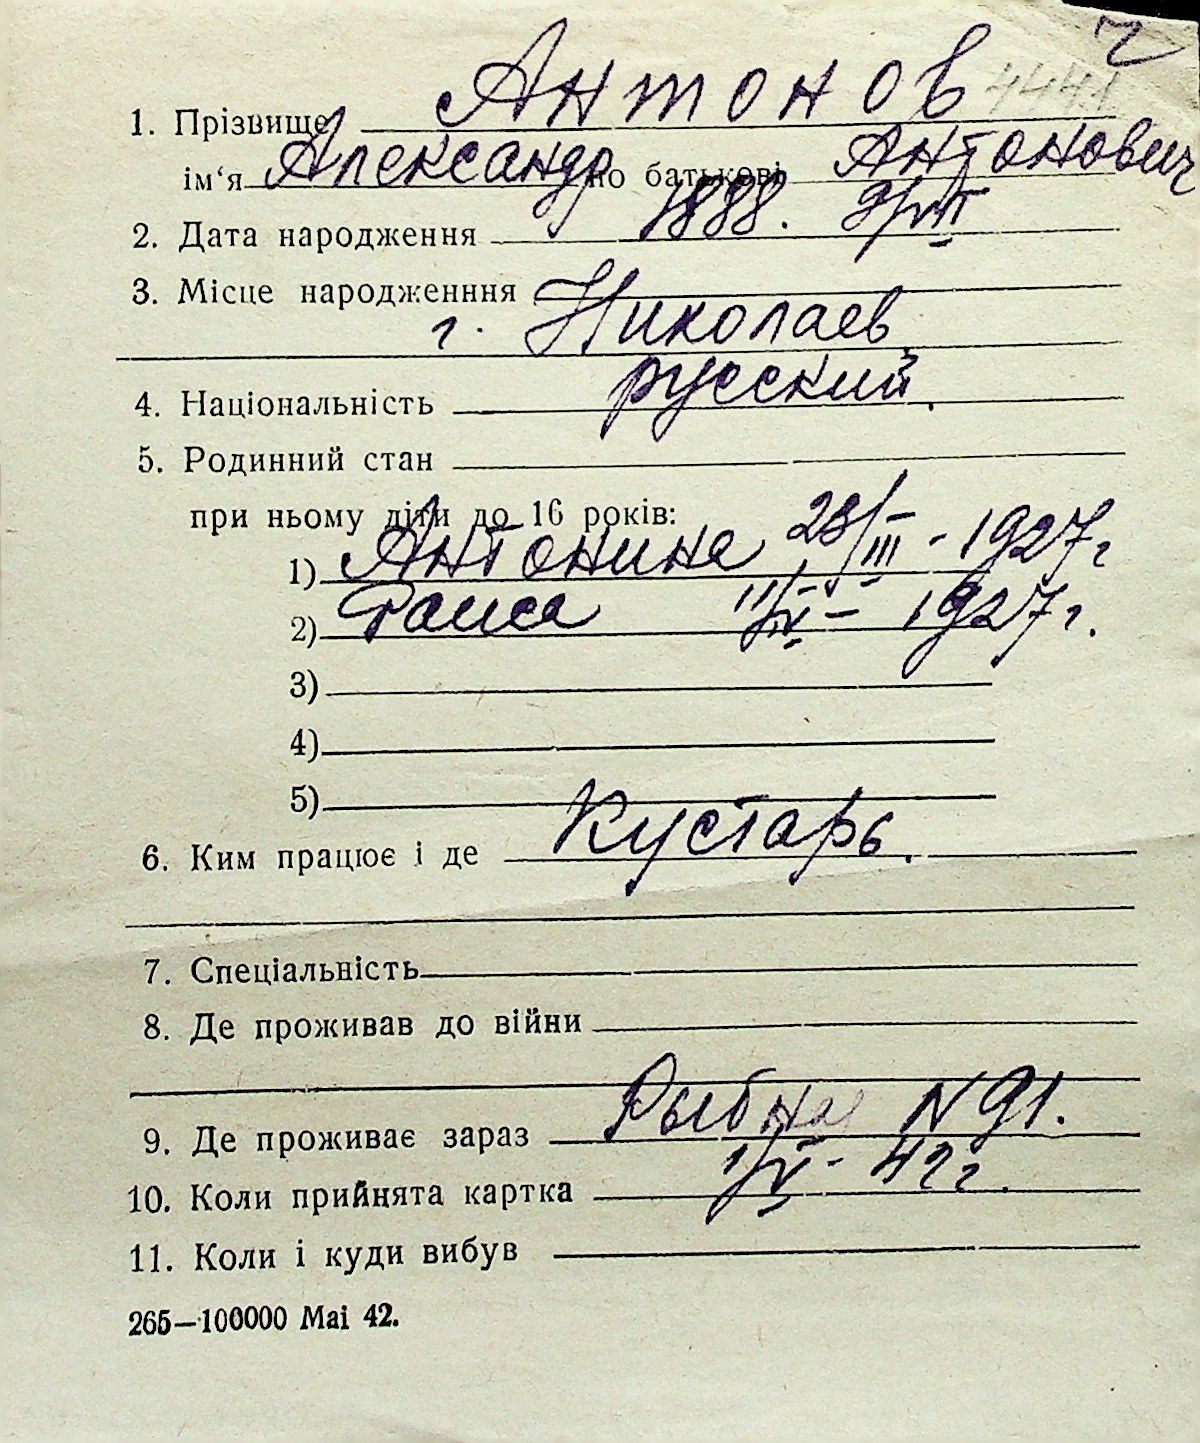 ч
4441
1. Прізвище Антонов
ім‘я Александр по батькові Антонович
2. Дата народження 1888. 9/VII
3. Місце народженння
г. Николаев
4. Національність русский.
5. Родинний стан
при ньому діти до 16 років:
1) Антонина 23/III - 1927 г
2) Раиса 11/IV - 1927 г.
3)
4)
5)
6. Ким працює і де Кустарь.
7. Спеціальність
8. Де проживав до війни
9. Де проживає зараз Рыбна N 91.
10. Коли прийнята картка 1/V - 42 г.
11. Коли і куди вибув
265—100000 Маі 42.